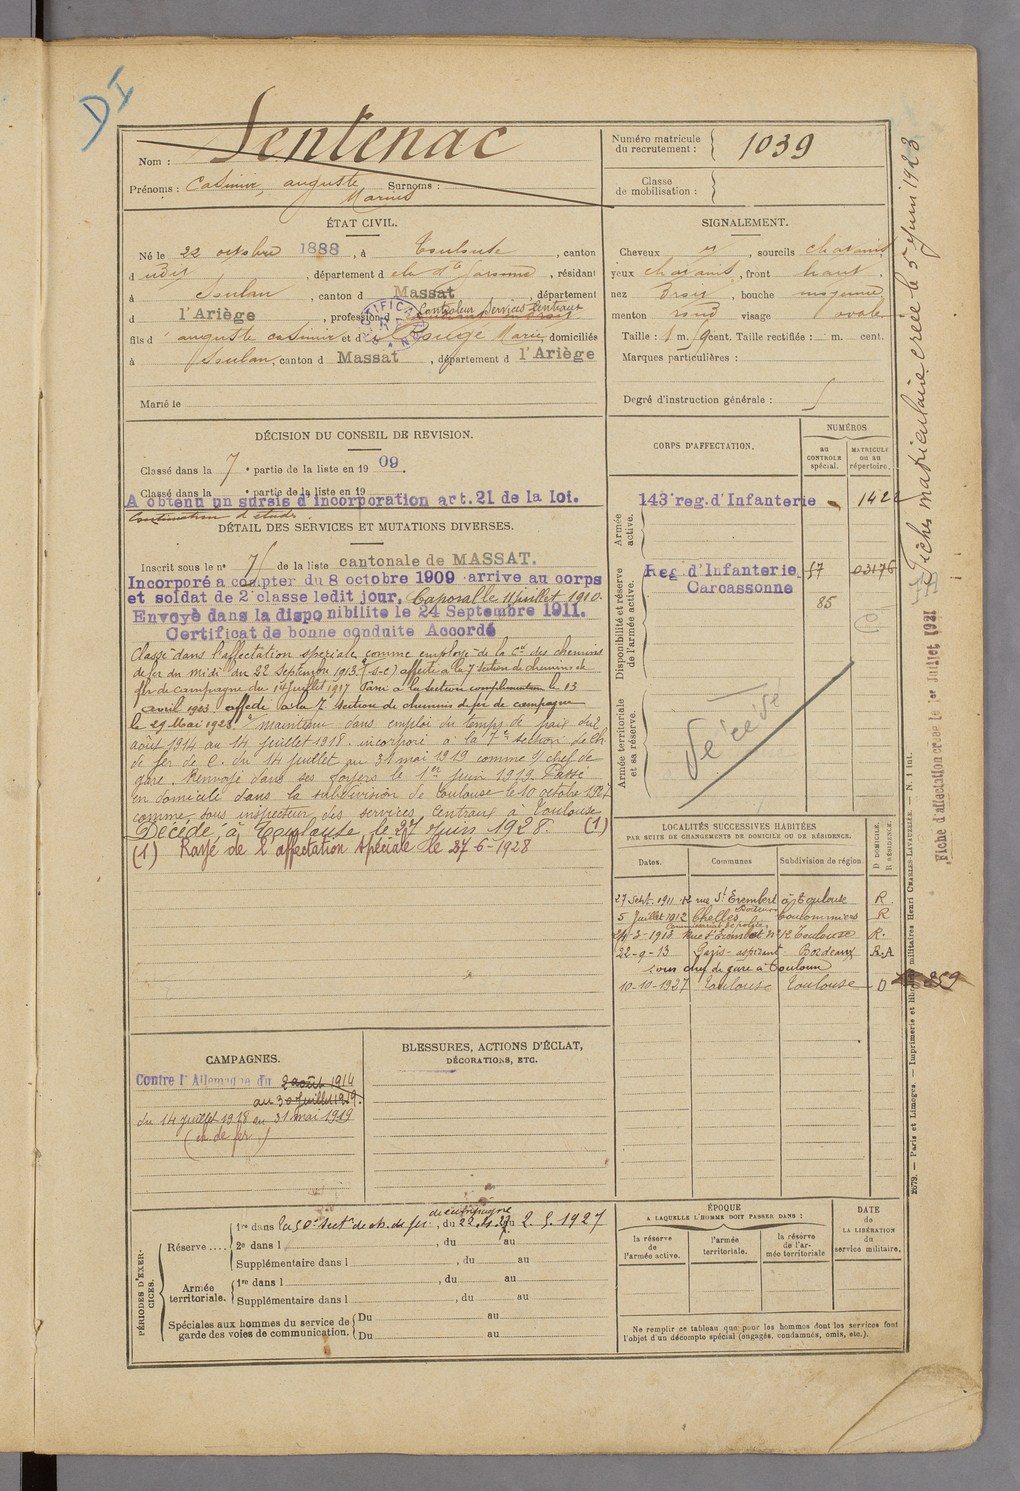 DI
Nom : Sentenac
Prénoms : Casimir, auguste Surnoms :
Marius
Numéro matricule
du recrutement : 1039
Classe
de mobilisation :
ÉTAT CIVIL.
Né le 22 octobre 1888, à Toulouse, canton
d udit, département d e la Hte Garonne, résidant
à Soulan, canton d Massat, département
d l'Ariège, profession d Controleur Services Centraux
fils d auguste casimir et d Rouge Marie, domiciliés
à Soulan, canton d Massat, département d l'Ariège
Marié le
SIGNALEMENT.
Cheveux, sourcils chatains
yeux chatains, front haut.
nez Droit, bouche moyenne
menton rond visage ovale
Taille : 1 m. cent. Taille rectifiée : m. cent.
Marques particulières :
Degré d'instruction générale :
DÉCISION DU CONSEIL DE REVISION.
Classé dans la 7e partie de la liste en 1909.
Classé dans la e partie de la liste en 19
A obtenu un sursis d'incorporation art. 21 de la loi.
Continuation d'études
DÉTAIL DES SERVICES ET MUTATIONS DIVERSES.
Inscrit sous le no 7 de la liste cantonale de MASSAT.
Incorporé a compter du 8 octobre 1909 arrive au corps
et soldat de 2e classe ledit jour. Caporal le 11 juillet 1910.
Envoyé dans la disponibilite le 24 Septembre 1911.
Certificat de bonne conduite Accordé
Classé dans l'affectation spéciale comme employé de la Cie des chemins
de fer du Midi du 22 Septembre 1913 (S-C) affecté à la 7e section de chemins de
fer de campagne du 14 juillet 1917 Passé à la section complémentaire le 13
avril 1923 affecté à la 7. Section de chemins de fer de campagne
le 29 Mai 1928. maintenu dans emploi du temps de paix du 2
août 1914 au 14 juillet 1918. incorporé à la 7e section de Ch.
de fer de C. du 14 juillet au 31 mai 1919 comme s/ chef de
gare. Renvoyé dans ses foyers le 1er juin 1919. Passé
en domicile dans la subdivision de Toulouse le 10 octobre 1927
comme sous inspecteur des services Centraux à Toulouse
Décédé à Toulouse le 27 Juin 1928. (1)
(1) Rayé de l'affectation spéciale le 27-6-1928
CORPS D'AFFECTATION.
NUMÉROS
au
CONTROLE
spécial.
MATRICULE
ou au
répertoire.
Armée
active.
143e reg. d'Infanterie 1422
Disponibilité et réserve
de l'armée active.
Reg. d'Infanterie 57 03176
Carcassonne
85
Armée territoriale
et sa réserve.
Décédé
LOCALITÉS SUCCESSIVES HABITÉES
PAR SUITE DE CHANGEMENTS DE DOMICILE OU DE RÉSIDENCE.
Dates. Communes Subdivision de région.
D DOMICILE.
R RÉSIDENCE.
27 Sept. 1911 12 rue St Erembert à Toulouse R
5 Juillet 1912 Chelles Coulommiers R
24-3-1913 Rue St Erembert no 12 Toulouse R.
22-9-13 Paris-aspirant Bordeaux R.A
sous chef de gare à Toulouse
10-10-1927 Toulouse Toulouse D 259
CAMPAGNES.
Contre l'Allemagne du 2 août 1914
au 30 juillet 1919.
du 14 juillet 1918 au 31 mai 1919
(ch. de fer.)
BLESSURES, ACTIONS D'ÉCLAT,
DÉCORATIONS, ETC.
PÉRIODES D'EXERCICES.
Réserve .... 1re dans la 50e Sectn de ch. de fer de campagne, du 22.4.27 au 2.5.1927
2e dans l, du au
Supplémentaire dans l, du au
Armée
territoriale. 1re dans l, du au
Supplémentaire dans l, du au
Spéciales aux hommes du service de
garde des voies de communication. Du au
Du au
ÉPOQUE
A LAQUELLE L'HOMME DOIT PASSER DANS :
la réserve
de
l'armée active.
l'armée
territoriale.
la réserve
de l'ar-
mée territoriale
DATE
de
LA LIBÉRATION
du
service militaire.
Ne remplir ce tableau que pour les hommes dont les services font
l'objet d'un décompte spécial (engagés, condamnés, omis, etc.).
Fiches matriculaire créée le 5 Juin 1923
Fiche d'affectation créée le 1er Juillet 1921
2079. — Paris et Limoges. — Imprimerie et librairie militaires Henri CHARLES-LAVAUZELLE. — N. 1 int.